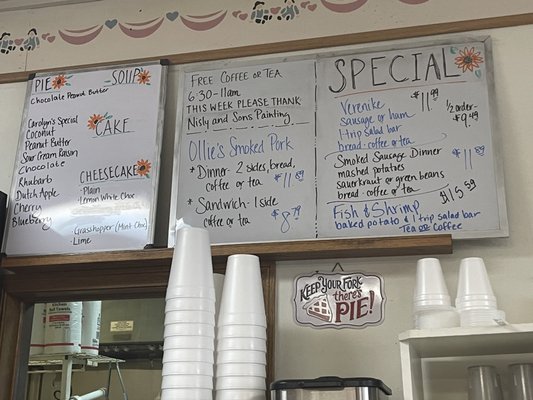 PIE
SOUPS
Chocolate Peanut Butter
Carolyn's Special
Coconut
Peanut Butter
Sour Cream Raisin
Chocolate
Rhubarb
Dutch Apple
Cherry
Blueberry
CAKE
CHEESECAKE
- Plain
- Lemon White Choc
- Grasshopper (Mint Choc)
- Lime
FREE COFFEE OR TEA
6:30-11am
THIS WEEK PLEASE THANK
Nisly and Sons Painting
Ollie's Smoked Pork
* Dinner - 2 sides, bread,
coffee or tea $11.89
* Sandwich - 1 side
coffee or tea $8.79
SPECIAL
Verenike $11.99
sausage or ham
1-trip salad bar
bread - coffee or tea
1/2 order-
$9.49
Smoked Sausage Dinner $11.89
mashed potatoes
sauerkraut or green beans
bread - coffee or tea
$15.59
Fish & Shrimp
baked potato & 1 trip salad bar
Tea or Coffee
KEEP YOUR FORK
there's
PIE!